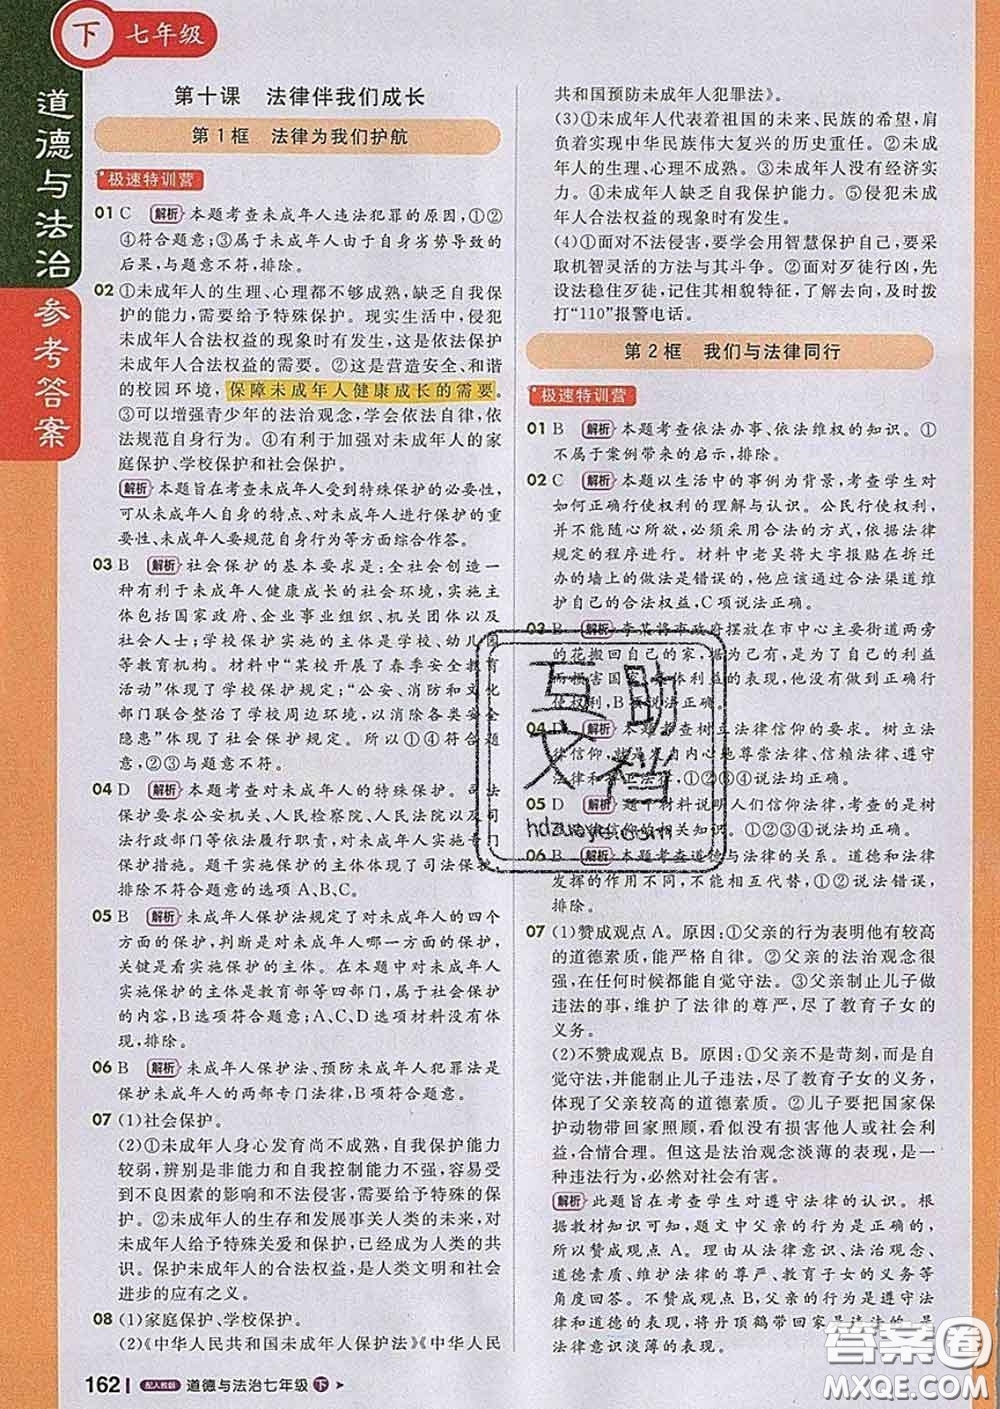 下 七年级
道德与法治
参考答案
第十课 法律伴我们成长
第1框 法律为我们护航
极速特训营
01 C 解析 本题考查未成年人违法犯罪的原因,①②
④符合题意;③属于未成年人由于自身劣势导致的
后果,与题意不符,排除。
02 ①未成年人的生理、心理都不够成熟,缺乏自我保
护的能力,需要给予特殊保护。现实生活中,侵犯
未成年人合法权益的现象时有发生,这是依法保护
未成年人合法权益的需要。②这是营造安全、和谐
的校园环境,保障未成年人健康成长的需要。
③可以增强青少年的法治观念,学会依法自律,依
法规范自身行为。④有利于加强对未成年人的家
庭保护、学校保护和社会保护。
解析 本题旨在考查未成年人受到特殊保护的必要性,
可从未成年人自身的特点、对未成年人保护的重
要性、未成年人要规范自身行为等方面综合作答。
03 B 解析 社会保护的基本要求是:全社会创造一
种有利于未成年人健康成长的社会环境,实施主
体包括国家政府、企业事业组织、机关团体以及
社会人士;学校保护实施的主体是学校、幼儿园
等教育机构。材料中“某校开展了春季安全教育
活动”体现了学校保护规定;“公安、消防和文化
部门联合整治了学校周边环境,以消除各类安全
隐患”体现了社会保护规定。所以①④符合题
意,②③与题意不符,排除。
04 D 解析 本题考查对未成年人的特殊保护。司法
保护要求公安机关、人民检察院、人民法院以及司
法行政部门在依法履行职责时,对未成年人实施
保护措施。题干实施保护的主体体现了司法保护,
排除不符合题意的选项A、B、C。
05 B 解析 未成年人保护法规定了对未成年人的四个
方面的保护,判断是对未成年人哪一方面的保护,
关键是看实施保护的主体。在本题中对未成年人
进行保护的主体是教育部等四部门,属于社会保护
的内容,B选项符合题意;A、C、D选项材料没有体现。
06 B 解析 未成年人保护法、预防未成年人犯罪法是
保护未成年人的两部专门法律,B项符合题意。
07 (1)社会保护。
(2)①未成年人身心发育尚不成熟,自我保护能力
较弱,辨别是非能力和自我控制能力不强,容易受
到不良因素的影响和不法侵害,需要给予特殊的保
护。②未成年人的生存和发展事关人类的未来,对
未成年人给予特殊关爱和保护,已经成为人类的共
识。保护未成年人的合法权益,是人类文明和社会
进步的应有之义。
08 (1)家庭保护、学校保护。
(2)《中华人民共和国未成年人保护法》《中华人民
共和国预防未成年人犯罪法》。
(3)①未成年人代表着祖国的未来、民族的希望,肩
负着实现中华民族伟大复兴的历史重任。②未成年
人生理不成熟、心理不成熟。③未成年人没有经济实
力。④未成年人缺乏自我保护能力。⑤侵犯未成
年人合法权益的现象时有发生。
(4)①面对不法侵害,要学会用智慧保护自己,要采
取机智灵活的方法与其斗争。②面对歹徒行凶,先
设法稳住歹徒,记住其相貌特征,了解去向,及时拨
打“110”报警电话。
第2框 我们与法律同行
极速特训营
01 B 解析 本题考查依法办事、依法维权的知识。①
不属于案例带来的启示,排除。
02 C 解析 本题以生活中的事例为背景,考查学生对
如何正确行使权利的理解与认识。公民行使权利,
并不能随心所欲,必须采用合法的方式,依据法律
规定的程序进行。材料中老吴将大字报贴在拆迁
办的墙上的做法是错误的,他应该通过合法渠道维
护自己的合法权益,C项说法正确。
03 B 解析 李某将市政府摆放在市中心主要街道两旁
的花搬回自己的家,是为了自己的利益
损害国家、集体利益的表现,他没有正确行
使权利,B项说法正确。
04 D 解析 本题考查树立法律信仰的要求。树立法
律信仰,就是发自内心地尊崇法律、信赖法律、遵守
法律和捍卫法律。①②③④说法均正确。
05 D 解析 题干材料说明人们信仰法律,考查的是树
立法律信仰的相关知识。①②③④说法均正确。
06 B 解析 本题考查道德与法律的关系。道德和法律
发挥的作用不同,不能相互代替,①说法错误,
排除。
07 (1)赞成观点A。原因:①父亲的行为表明他有较高
的道德素质,能严格自律。②父亲的法治观念很
强,在任何时候都能自觉守法。③父亲制止儿子做
违法的事,维护了法律的尊严,尽了教育子女的
义务。
(2)不赞成观点B。原因:①父亲不是苛刻,而是自
觉守法,并能制止儿子违法,尽了教育子女的义务,
体现了父亲较高的道德素质。②儿子要把国家保
护动物带回家来照顾,看似没有损害他人和社会利
益,合情合理。但这是法治观念淡薄的表现,是一
种违法行为,必然对社会有害。
解析 此题旨在考查学生对遵守法律的认识。根
据教材知识可知,题文中父亲的行为是正确的,
所以赞成观点A。理由从法律意识、法治观念、
道德素质、维护法律的尊严、教育子女的义务等
角度回答。不赞成观点B,主要是看父亲遵守法
律和道德的表现,将丹顶鹤带回家是违法的,是
法律意识淡薄的表现。
162 配人教版 道德与法治七年级 下
互助文档
hdzuoye.com
答案圈
MXQE.COM